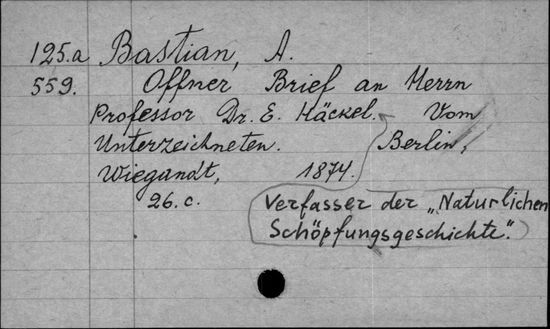 125.a Bastian, A.
559. Offner Brief an Herrn
Professor Dr. E. Häckel. Vom
Unterzeichneten. Berlin,
Wiegandt, 1874.
26. c. Verfasser der „Naturlichen
Schöpfungsgeschichte".